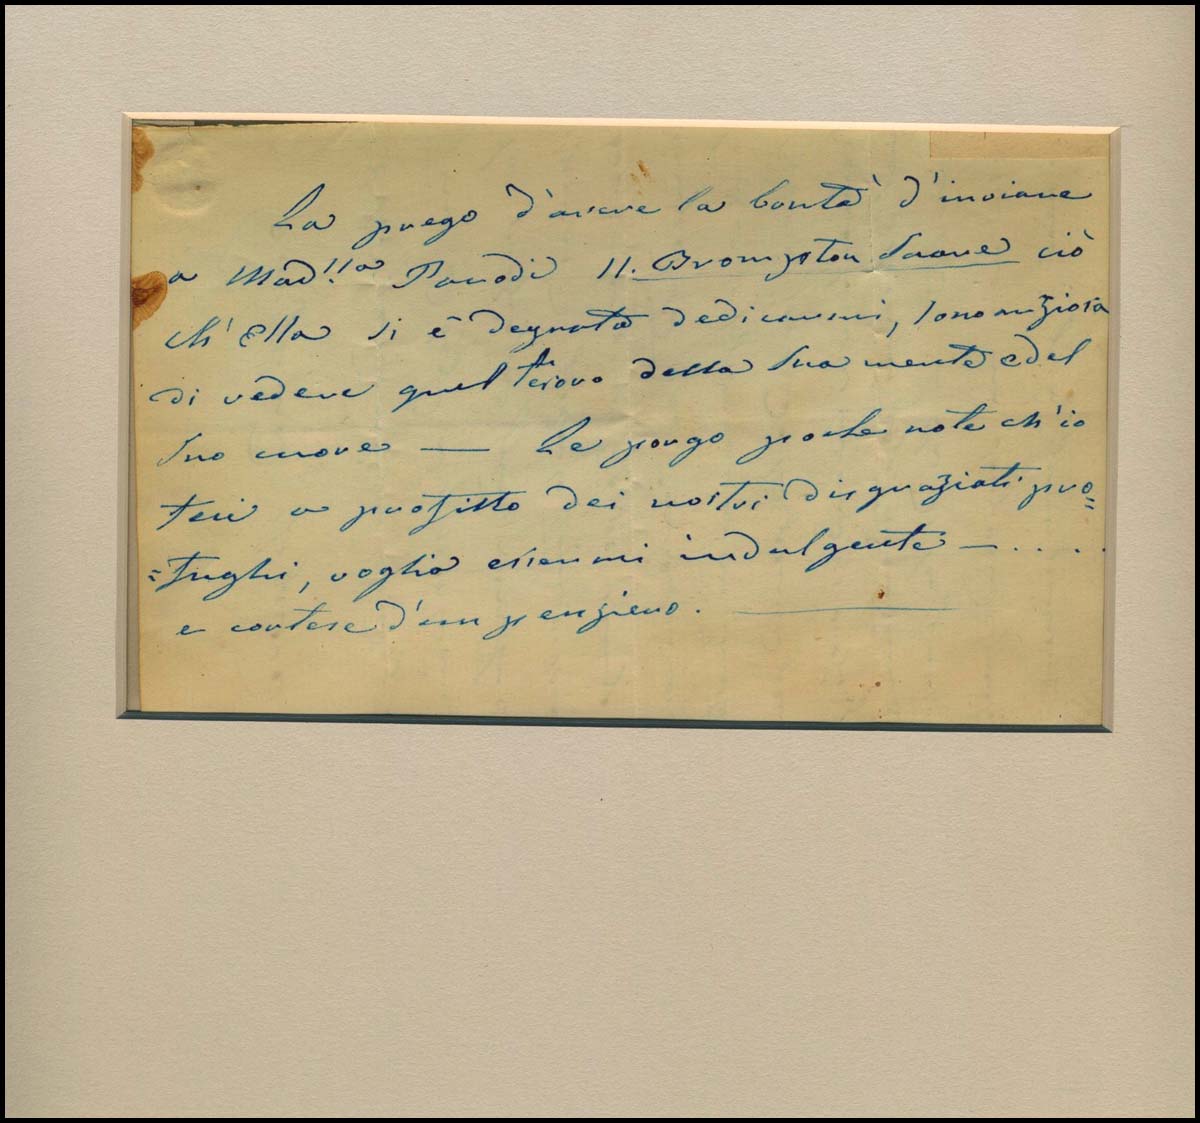 La prego d'avere la bontà d'inviare
a Mad!lla Parodi 11. Brompton Square ciò
ch'Ella si è degnata dedicarmi, sono anziosa
di vedere quel tesoro della Sua mente e del
Suo cuore — Le porgo poche note ch'io
feci a profitto dei nostri disgraziati pro=
=fughi, voglia essermi indulgente — . . . .
e cortese d'un pensiero. —